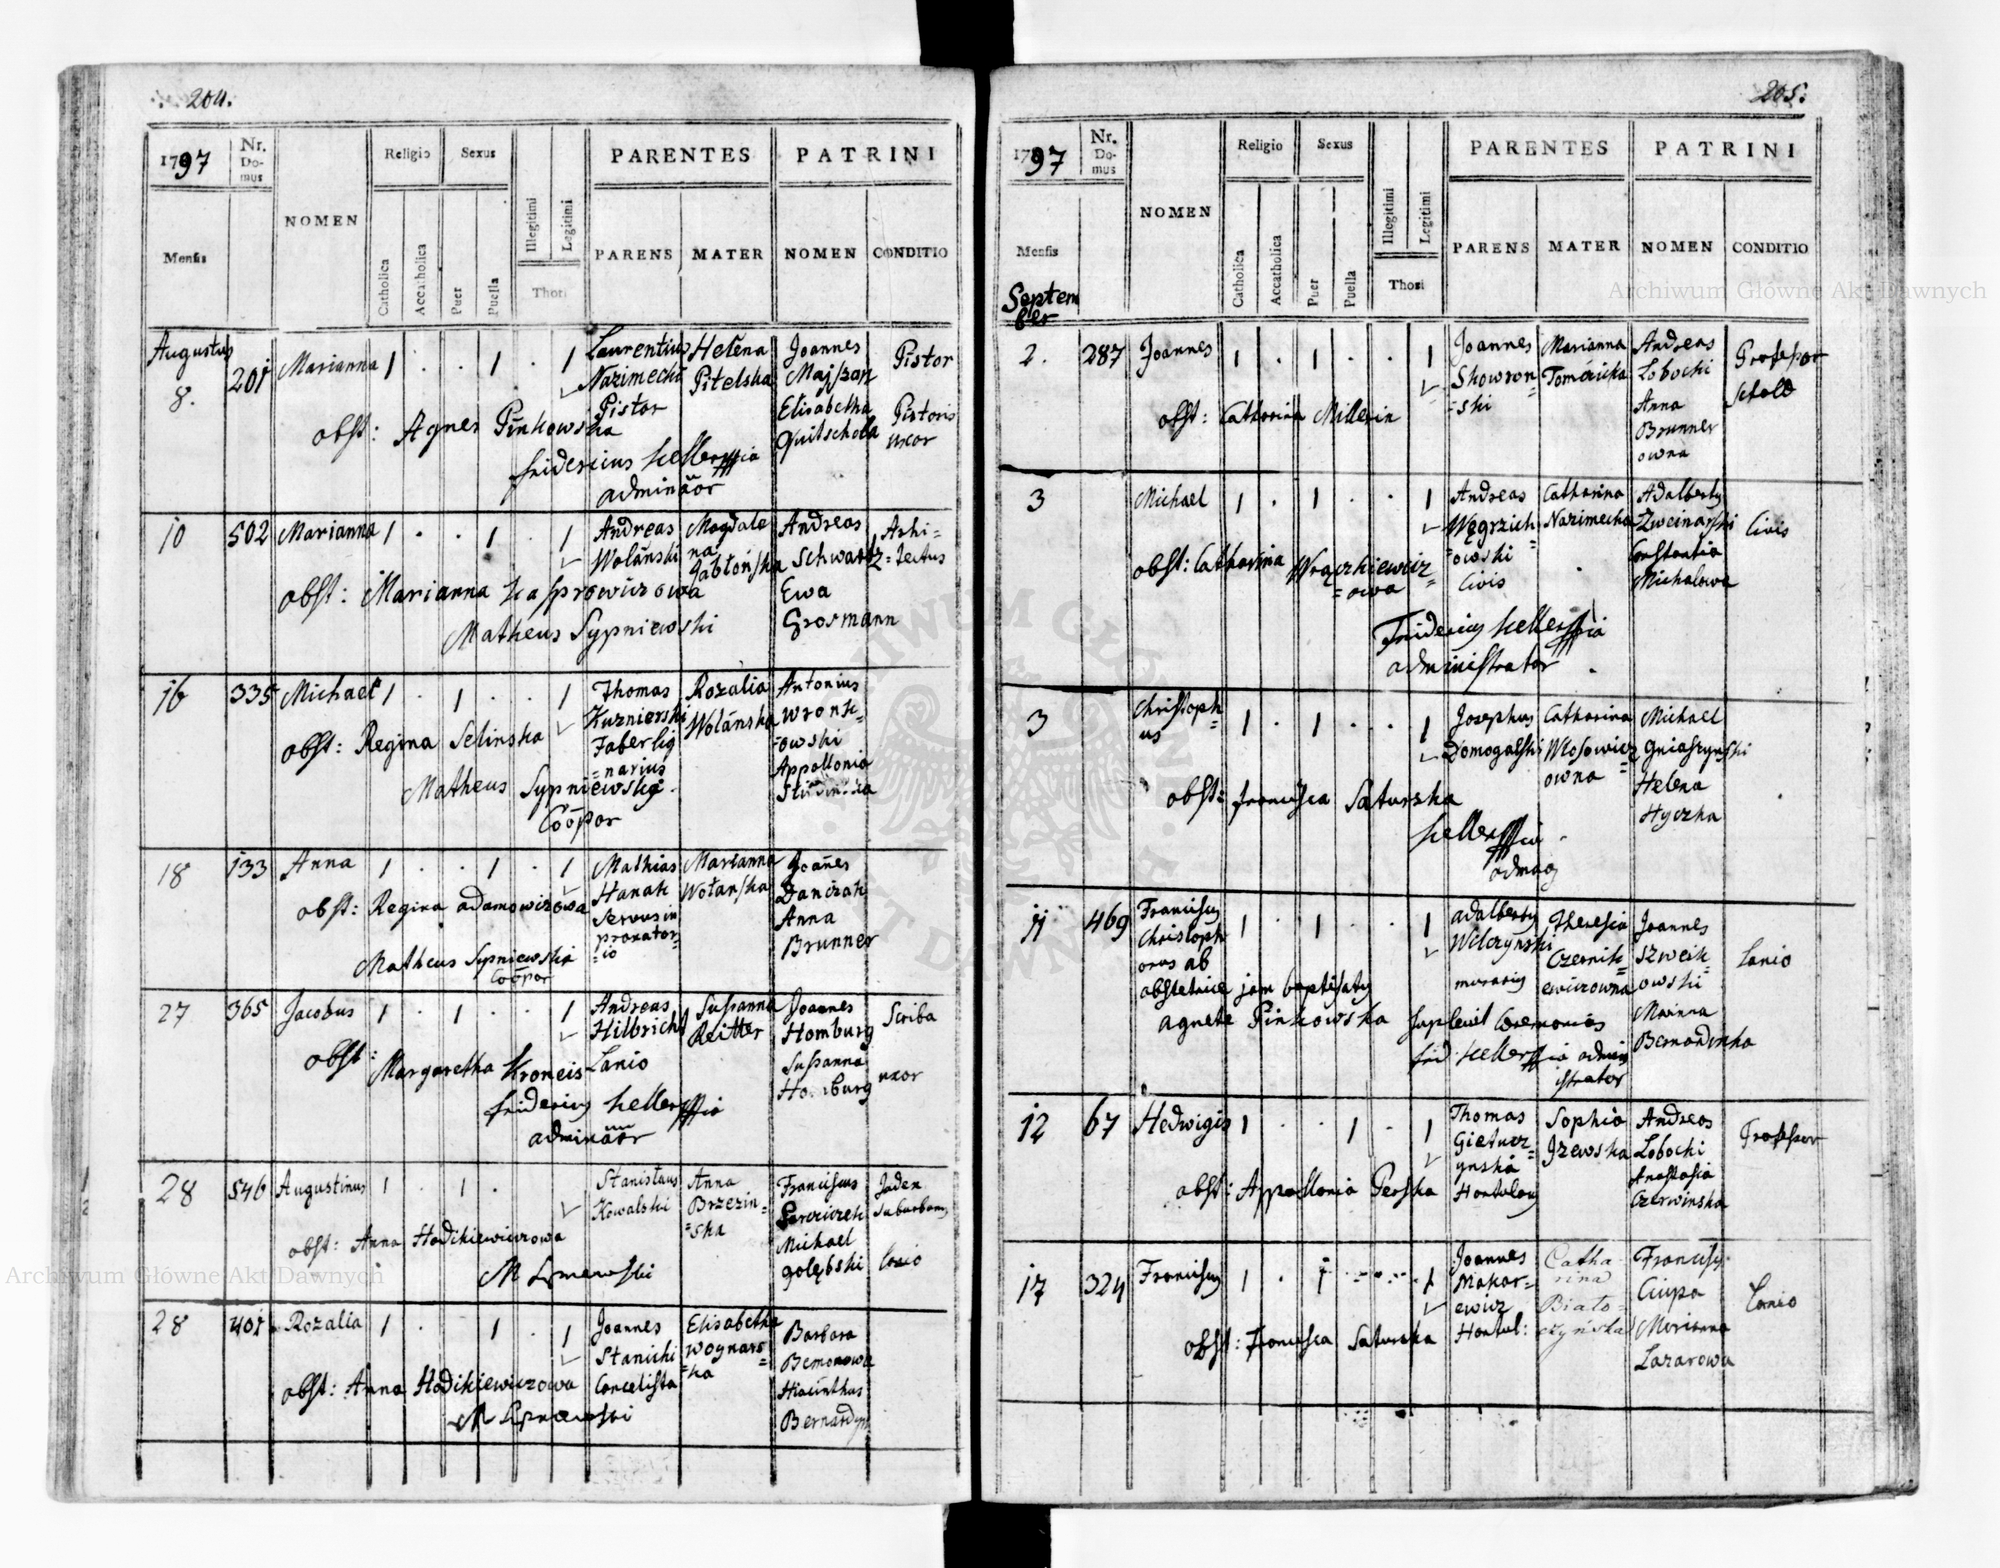 204.
1797
Nr. Do-mus
NOMEN
Religio
Sexus
Illegitimi
Legitimi
Thori
PARENTES
PATRINI
Mensis
Catholica
Accatholica
Puer
Puella
PARENS
MATER
NOMEN
CONDITIO
Augustus
8.
201
Marianna 1 . . 1 . 1
Laurentius
Nazimecki
Pistor
Helena
Pitelska
Joannes
Majszan
Elisabetha
Quitschola
Pistor
Pistoris
uxor
obst: Agnes Pinkowska
Fridericus Keller
admināor
10
502
Marianna 1 . . 1 . 1
Andreas
Wolánski
Magdale
na
Jabłońska
Andreas
Schwartz
Ewa
Grosmann
Arhi-
-tectus
obst: Marianna Kasprowiczowa
Matheus Sypniewski
16
335
Michael 1 . 1 . . 1
Thomas
Kuznierski
Faber lig
=narius
Rozalia
Wolánska
Antonius
Wronk-
-owski
Appollonia
obst: Regina Selinska
Matheus Sypniewski
Coōpor
18
133
Anna 1 . . 1 . 1
Mathias
Hanak
Servus in
proxator-
-io
Marianna
Wolanska
Joañes
Danczak
Anna
Brunner
obst: Regina Adamowizowa
Matheus Sypniewski
Coōpor
27
365
Jacobus 1 . 1 . . 1
Andreas
Hilbricht
Lanio
Susanna
Reitter
Joannes
Homburg
Susanna
Homburg
Scriba
uxor
obst: Margaretha Kroneis
Fridericus Keller
admināor
28
546
Augustinus 1 . 1 .
Stanislaus
Kowalski
Anna
Brzezin-
=ska
Franciscus
Michael
Golębski
Suburbanus
Lanio
obst: Anna Hodikiewiczowa
28
401
Rozalia 1 . . 1 . 1
Joannes
Stanicki
Cancelista
Elisabetha
Woynars-
=ka
Barbara
Bemonowa
Hiacinthus
Bernardyn
obst: Anna Hodikiewiczowa
205.
1797
Nr. Do-mus
NOMEN
Religio
Sexus
Illegitimi
Legitimi
Thori
PARENTES
PATRINI
Mensis
Catholica
Accatholica
Puer
Puella
PARENS
MATER
NOMEN
CONDITIO
Septem
ber
2.
287
Joannes 1 . 1 . . 1
Joannes
Skowron=
=ski
Marianna
Tomericka
Andreas
Lobocki
Anna
Brunner
owna
Professor
Schold
obst: Catharina Millerin
3
Michael 1 . 1 . . 1
Andreas
Węgrzich=
=owski
Civis
Catharina
Nazimecka
Adalbertus
Zweinarski
Constantia
Michalowa
Civis
obst: Catharina Wrączkiewicz=
=owa
Fridericus Keller
administrator
3
Christoph=
us 1 . 1 . . 1
Josephus
Domogalski
Catharina
Wlosowicz
owna
Michael
Gniaszynski
Helena
Hyczka
obst: Francisca Saturska
Keller
11
469
Franciscus
Christoph
orus ab
obstetrice jam baptisatus
Agnete Pinkowska suplevit Ceremonias
Frid: Keller admin
istrator
1 . 1 . . 1
Adalbertus
Wilczynski
murarius
Theresia
Czernik=
ewiczowna
Joannes
Szweik=
owski
Marinna
Bernardinka
Lanio
12
67
Hedwigis 1 . . 1 . 1
Thomas
Gieturz=
ynski
Hortulanus
Sophia
Jzewska
Andreas
Lobocki
Anastasia
Czerwinska
Professor
obst: Appollonia Perska
17
324
Franciscus 1 . 1 . . 1
Joannes
Makar=
ewicz
Hortul:
Catha
rina
Biało-
czyńska
Franciscus
Ciupa
Marianna
Lazarowa
Lanio
obst: Francisca Saturska
Archiwum Główne Akt Dawnych
Archiwum Główne Akt Dawnych